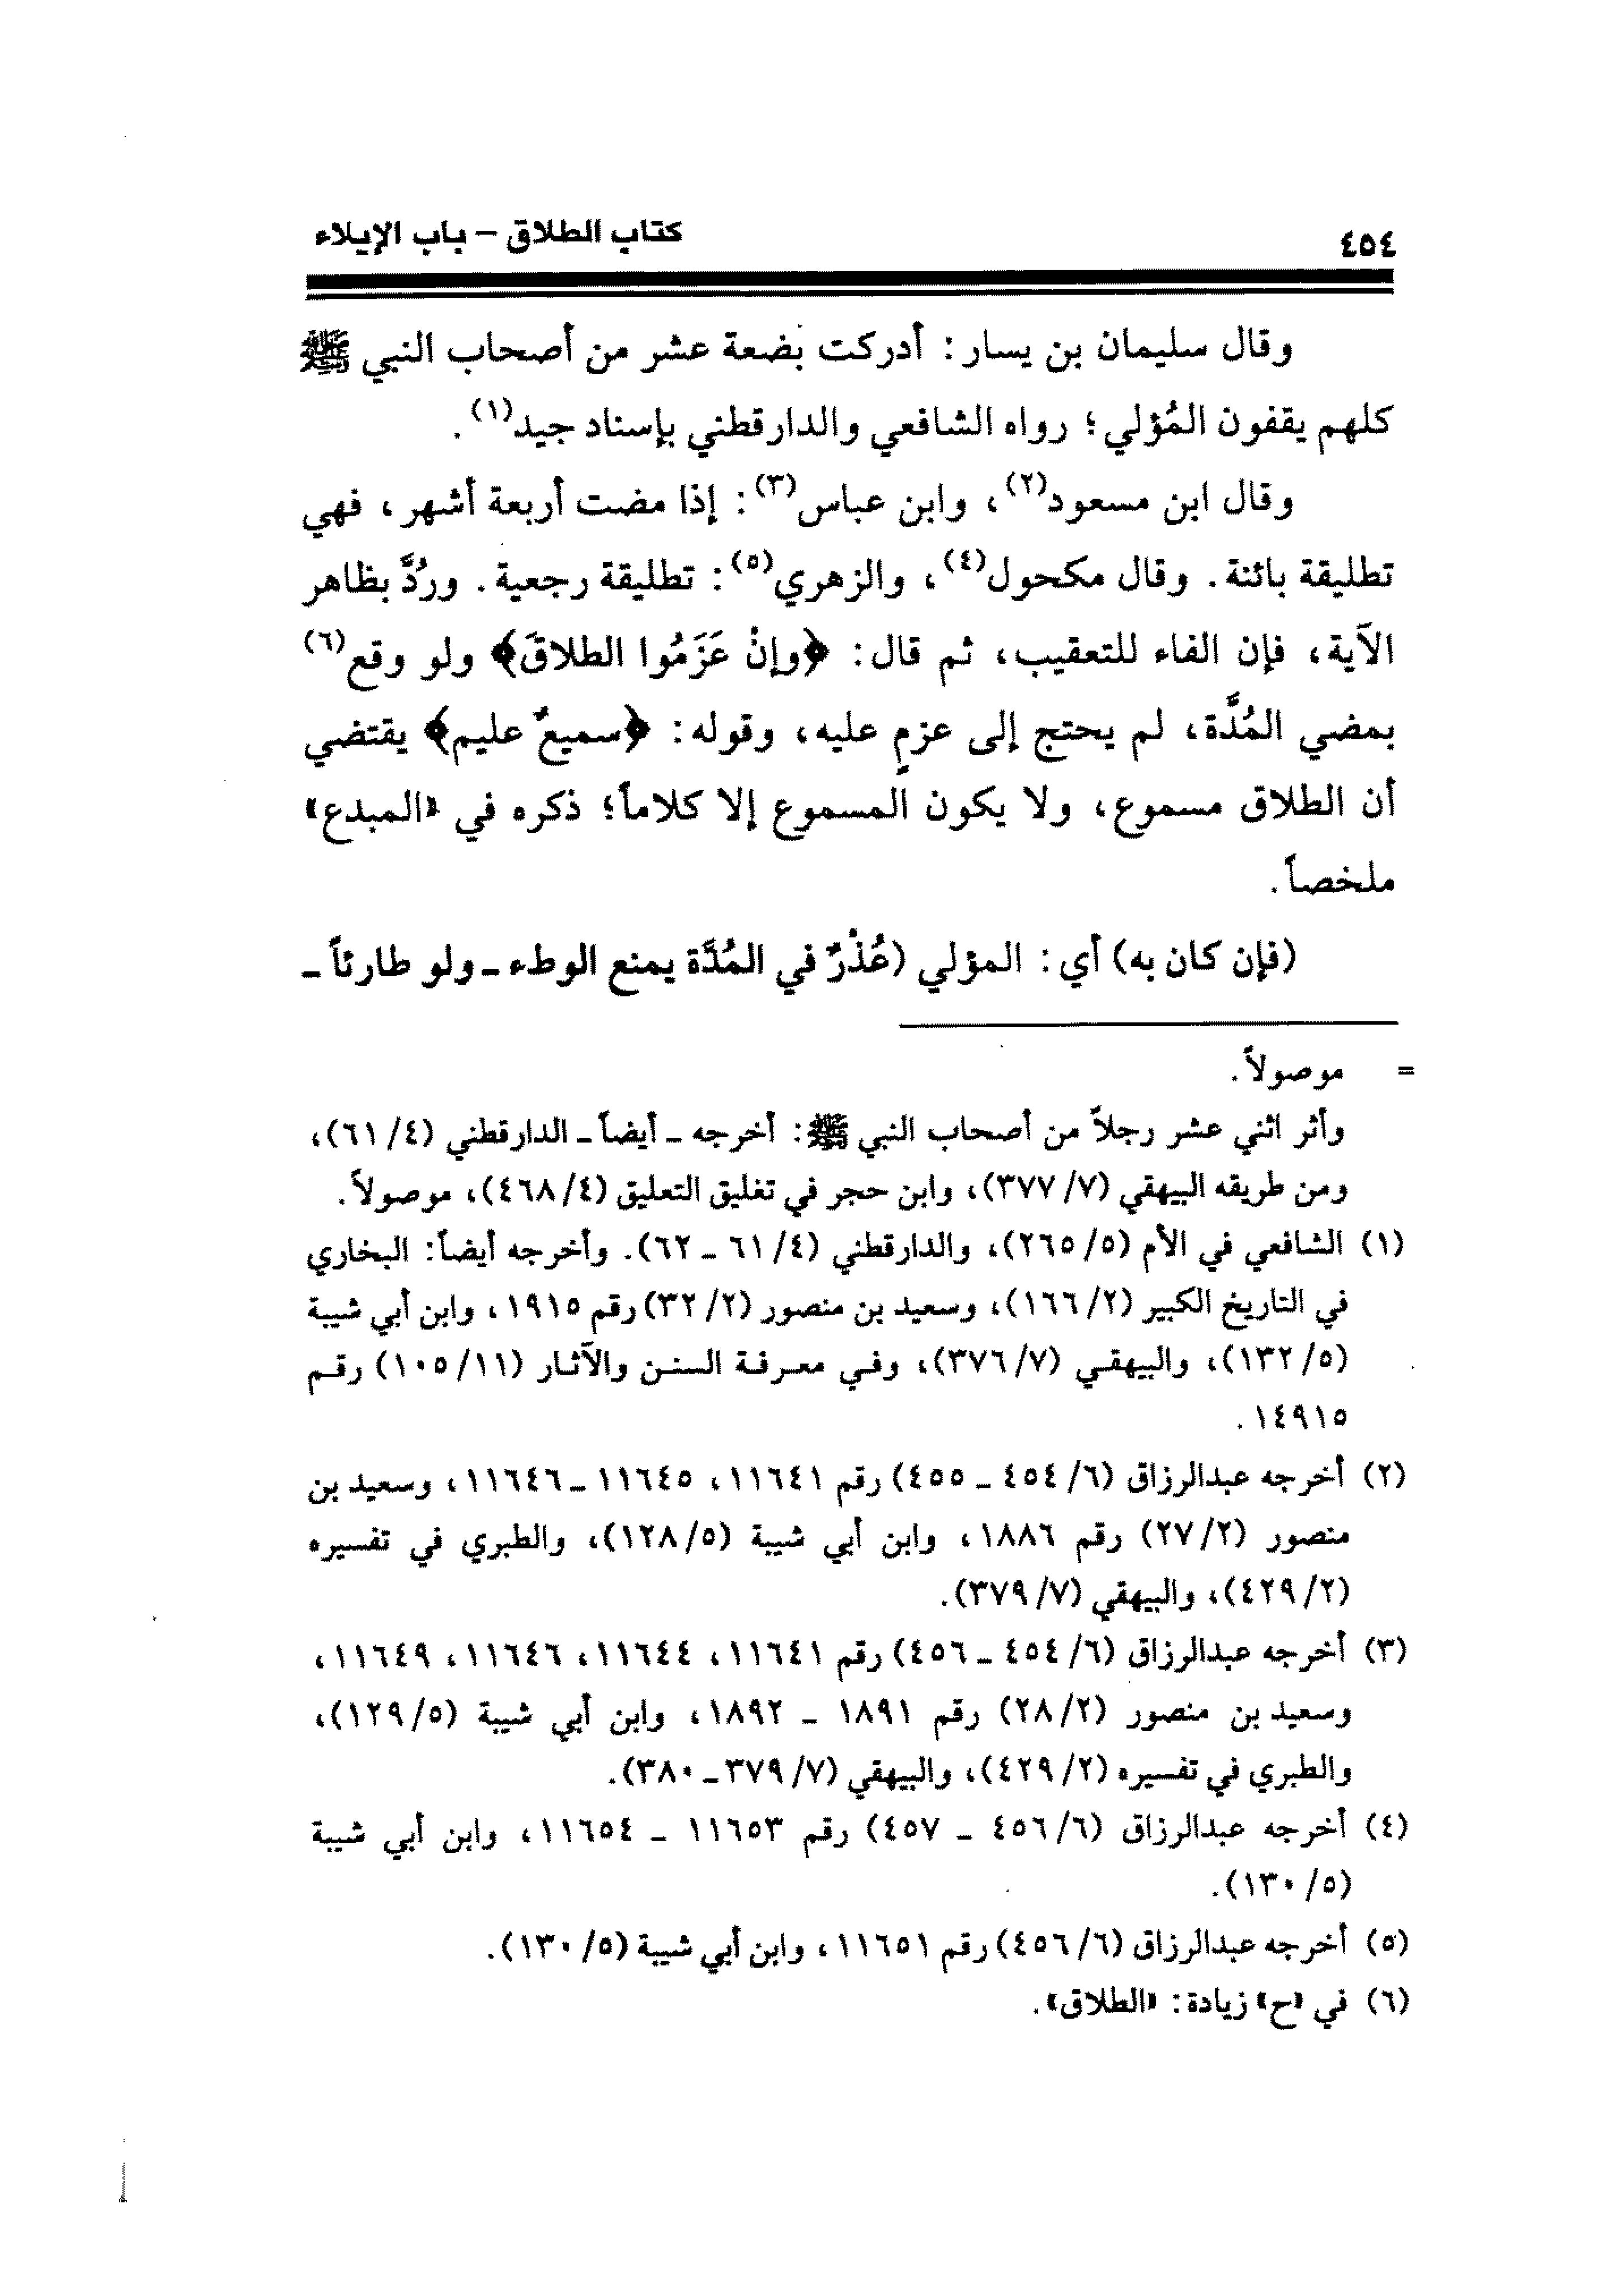 ٤٥٤
كتاب الطلاق – باب الإيلاء
وقال سليمان بن يسار: أدركت بضعة عشر من أصحاب النبي ﷺ
كلهم يقفون المُؤلي؛ رواه الشافعي والدارقطني بإسناد جيد(١).
وقال ابن مسعود(٢)، وابن عباس(٣): إذا مضت أربعة أشهر، فهي
تطليقة بائنة. وقال مكحول(٤)، والزهري(٥): تطليقة رجعية. ورُدَّ بظاهر
الآية، فإن الفاء للتعقيب، ثم قال: ﴿وإنْ عَزَمُوا الطلاقَ﴾ ولو وقع(٦)
بمضي المُدَّة، لم يحتج إلى عزمٍ عليه، وقوله: ﴿سميعٌ عليم﴾ يقتضي
أن الطلاق مسموع، ولا يكون المسموع إلا كلاماً؛ ذكره في «المبدع»
ملخصاً.
(فإن كان به) أي: المؤلي (عُذْرٌ في المُدَّة يمنع الوطء ـ ولو طارئاً ـ
= موصولاً.
وأثر اثني عشر رجلاً من أصحاب النبي ﷺ: أخرجه ـ أيضاً ـ الدارقطني (٤/ ٦١)،
ومن طريقه البيهقي (٧/ ٣٧٧)، وابن حجر في تغليق التعليق (٤/ ٤٦٨)، موصولاً.
(١) الشافعي في الأم (٥/ ٢٦٥)، والدارقطني (٤/ ٦١ ـ ٦٢). وأخرجه أيضاً: البخاري
في التاريخ الكبير (٢/ ١٦٦)، وسعيد بن منصور (٢/ ٣٢) رقم ١٩١٥، وابن أبي شيبة
(٥/ ١٣٢)، والبيهقي (٧/ ٣٧٦)، وفي معرفة السنن والآثار (١١/ ١٠٥) رقم
١٤٩١٥.
(٢) أخرجه عبدالرزاق (٦/ ٤٥٤ ـ ٤٥٥) رقم ١١٦٤١، ١١٦٤٥ ـ ١١٦٤٦، وسعيد بن
منصور (٢/ ٢٧) رقم ١٨٨٦، وابن أبي شيبة (٥/ ١٢٨)، والطبري في تفسيره
(٢/ ٤٢٩)، والبيهقي (٧/ ٣٧٩).
(٣) أخرجه عبدالرزاق (٦/ ٤٥٤ ـ ٤٥٦) رقم ١١٦٤١، ١١٦٤٤، ١١٦٤٦، ١١٦٤٩،
وسعيد بن منصور (٢/ ٢٨) رقم ١٨٩١ ـ ١٨٩٢، وابن أبي شيبة (٥/ ١٢٩)،
والطبري في تفسيره (٢/ ٤٢٩)، والبيهقي (٧/ ٣٧٩ ـ ٣٨٠).
(٤) أخرجه عبدالرزاق (٦/ ٤٥٦ ـ ٤٥٧) رقم ١١٦٥٣ ـ ١١٦٥٤، وابن أبي شيبة
(٥/ ١٣٠).
(٥) أخرجه عبدالرزاق (٦/ ٤٥٦) رقم ١١٦٥١، وابن أبي شيبة (٥/ ١٣٠).
(٦) في «ح» زيادة: «الطلاق».